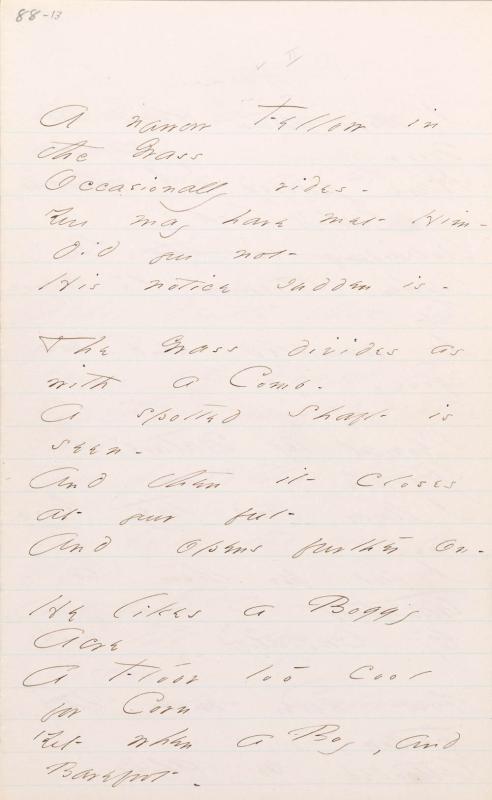 88-13
II
A narrow Fellow in
the Grass
Occasionally rides -
You may have met Him -
Did you not -
His notice sudden is -
The Grass divides as
with a Comb -
A spotted shaft is
seen -
And then it closes
at your feet -
And opens further on -
He likes a Boggy
Acre
A Floor too cool
for Corn
Yet when a Boy, and
Barefoot -